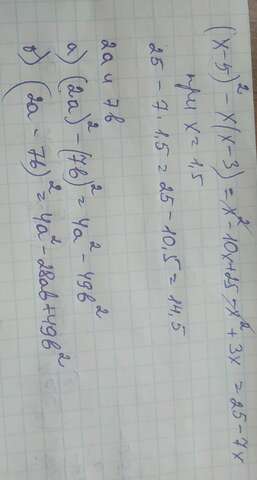 (x-5)² - x(x-3) = x² - 10x + 25 - x² + 3x = 25 - 7x
при x = 1,5
25 - 7·1,5 = 25 - 10,5 = 14,5
2a и 7b
а) (2a)² - (7b)² = 4a² - 49b²
б) (2a - 7b)² = 4a² - 28ab + 49b²